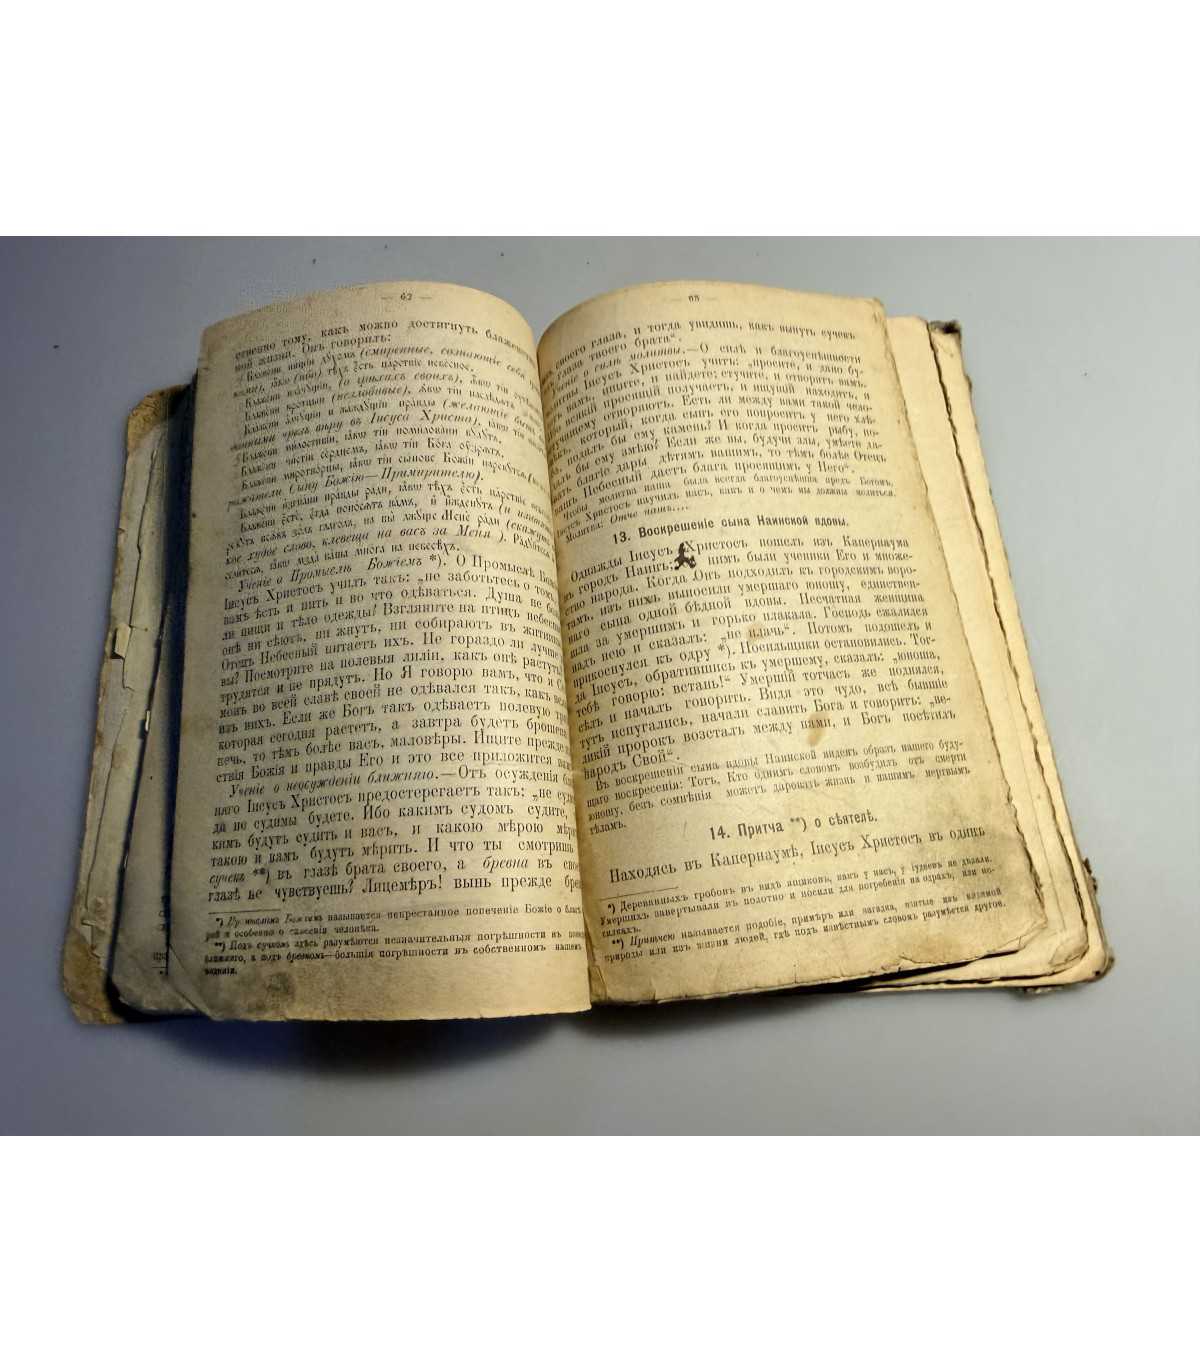 — 62 —
ственно тому, какъ можно достигнуть
ной жизни. Онъ говорилъ:
Блажени нищіи духомъ (смиренные, сознающіе свои
царствіе небесное.
(незлобивые),
Иисуса Христа),
Блажени милостивіи, помиловани будутъ.
Блажени чистіи сердцемъ, Бога
Блажени миротворцы, тіи сынове Божіи нарекутся
Сыну Божію—Примирителю).
Блажени изгнани правды ради, тѣхъ есть царствіе
Блажени есте, егда поносятъ вамъ,
Мене ради
кое худое слово, клевеща на васъ за Меня).
мзда ваша многа на небесѣхъ.
Ученіе о Промыслѣ Божіемъ *). О Промыслѣ
Іисусъ Христосъ училъ такъ: „не заботьтесь о томъ,
вамъ ѣсть и пить и во что одѣваться. Душа не
ли пищи и тѣло одежды? Взгляните на птицъ
онѣ ни сѣютъ, ни жнутъ, ни собираютъ въ житницы,
Отецъ Небесный питаетъ ихъ. Не гораздо ли
вы? Посмотрите на полевыя лиліи, какъ онѣ растутъ:
трудятся и не прядутъ. Но Я говорю вамъ, что и
монъ во всей славѣ своей не одѣвался такъ, какъ
изъ нихъ. Если же Богъ такъ одѣваетъ полевую
которая сегодня растетъ, а завтра будетъ брошена
печь, то тѣмъ болѣе васъ, маловѣры. Ищите прежде
ствія Божія и правды Его и это все приложится
Ученіе о неосужденіи ближняго.—Отъ осужденія
няго Іисусъ Христосъ предостерегаетъ такъ: „не
да не судимы будете. Ибо какимъ судомъ судите,
кимъ будутъ судить и васъ, и какою мѣрою
такою и вамъ будутъ мѣрить. И что ты смотришь
сучекъ **) въ глазѣ брата своего, а бревна въ
глазѣ не чувствуешь? Лицемѣръ! вынь прежде
*) Промысломъ Божіимъ называется непрестанное попеченіе Божіе о
и особенно о спасеніи человѣка.
**) Подъ сучкомъ здѣсь разумѣются незначительныя погрѣшности въ
ближняго, а подъ бревномъ—большія погрѣшности въ собственномъ нашемъ
веденіи.
своего глаза, и тогда увидишь, какъ вынуть сучекъ
глаза твоего брата“.
о силѣ молитвы.—О силѣ и благоуспѣшности
Іисусъ Христосъ учитъ: „просите, и дано бу-
вамъ, ищите, и найдете; стучите, и отворятъ вамъ.
всякій просящій получаетъ, и ищущій находитъ, и
отворяютъ. Есть ли между вами такой чело-
который, когда сынъ его попроситъ у него хлѣ-
подалъ бы ему камень? И когда проситъ рыбу, по-
бы ему змѣю? Если же вы, будучи злы, умѣете да-
благіе дары дѣтямъ вашимъ, то тѣмъ болѣе Отецъ
Небесный дастъ блага просящимъ у Него“.
Чтобы молитва наша была всегда благоуспѣшна предъ Богомъ,
Христосъ научилъ насъ, какъ и о чемъ мы должны молиться.
Молитва: Отче нашъ....
13. Воскрешеніе сына Наинской вдовы.
Однажды Іисусъ Христосъ пошелъ изъ Капернаума
въ городъ Наинъ; нимъ были ученики Его и множе-
ство народа. Когда Онъ подходилъ къ городскимъ воро-
тамъ, изъ нихъ выносили умершаго юношу, единствен-
наго сына одной бѣдной вдовы. Несчатная женщина
шла за умершимъ и горько плакала. Господь сжалился
надъ нею и сказалъ: „не плачь“. Потомъ подошелъ и
прикоснулся къ одру *). Носильщики остановились. Тог-
да Іисусъ, обратившись къ умершему, сказалъ: „юноша,
тебѣ говорю: встань!“ Умершій тотчасъ же поднялся,
сѣлъ и началъ говорить. Видя это чудо, всѣ бывшіе
тутъ испугались, начали славить Бога и говорить: „ве-
ликій пророкъ возсталъ между нами, и Богъ посѣтилъ
народъ Свой“.
Въ воскрешеніи сына вдовы Наинской виденъ образъ нашего буду-
щаго воскресенія: Тотъ, Кто однимъ словомъ возбудилъ отъ смерти
юношу, безъ сомнѣнія можетъ даровать жизнь и нашимъ мертвымъ
тѣламъ.
14. Притча **) о сѣятелѣ.
Находясь въ Капернаумѣ, Іисусъ Христосъ въ одинъ
*) Деревянныхъ гробовъ въ видѣ ящиковъ, какъ у насъ, у іудеевъ не дѣлали.
Умершихъ завертывали въ полотно и носили для погребенія на одрахъ, или но-
силкахъ.
**) Притчею называется подобіе, примѣръ или загадка, взятые изъ видимой
природы или изъ жизни людей, гдѣ подъ извѣстнымъ словомъ разумѣется другое.